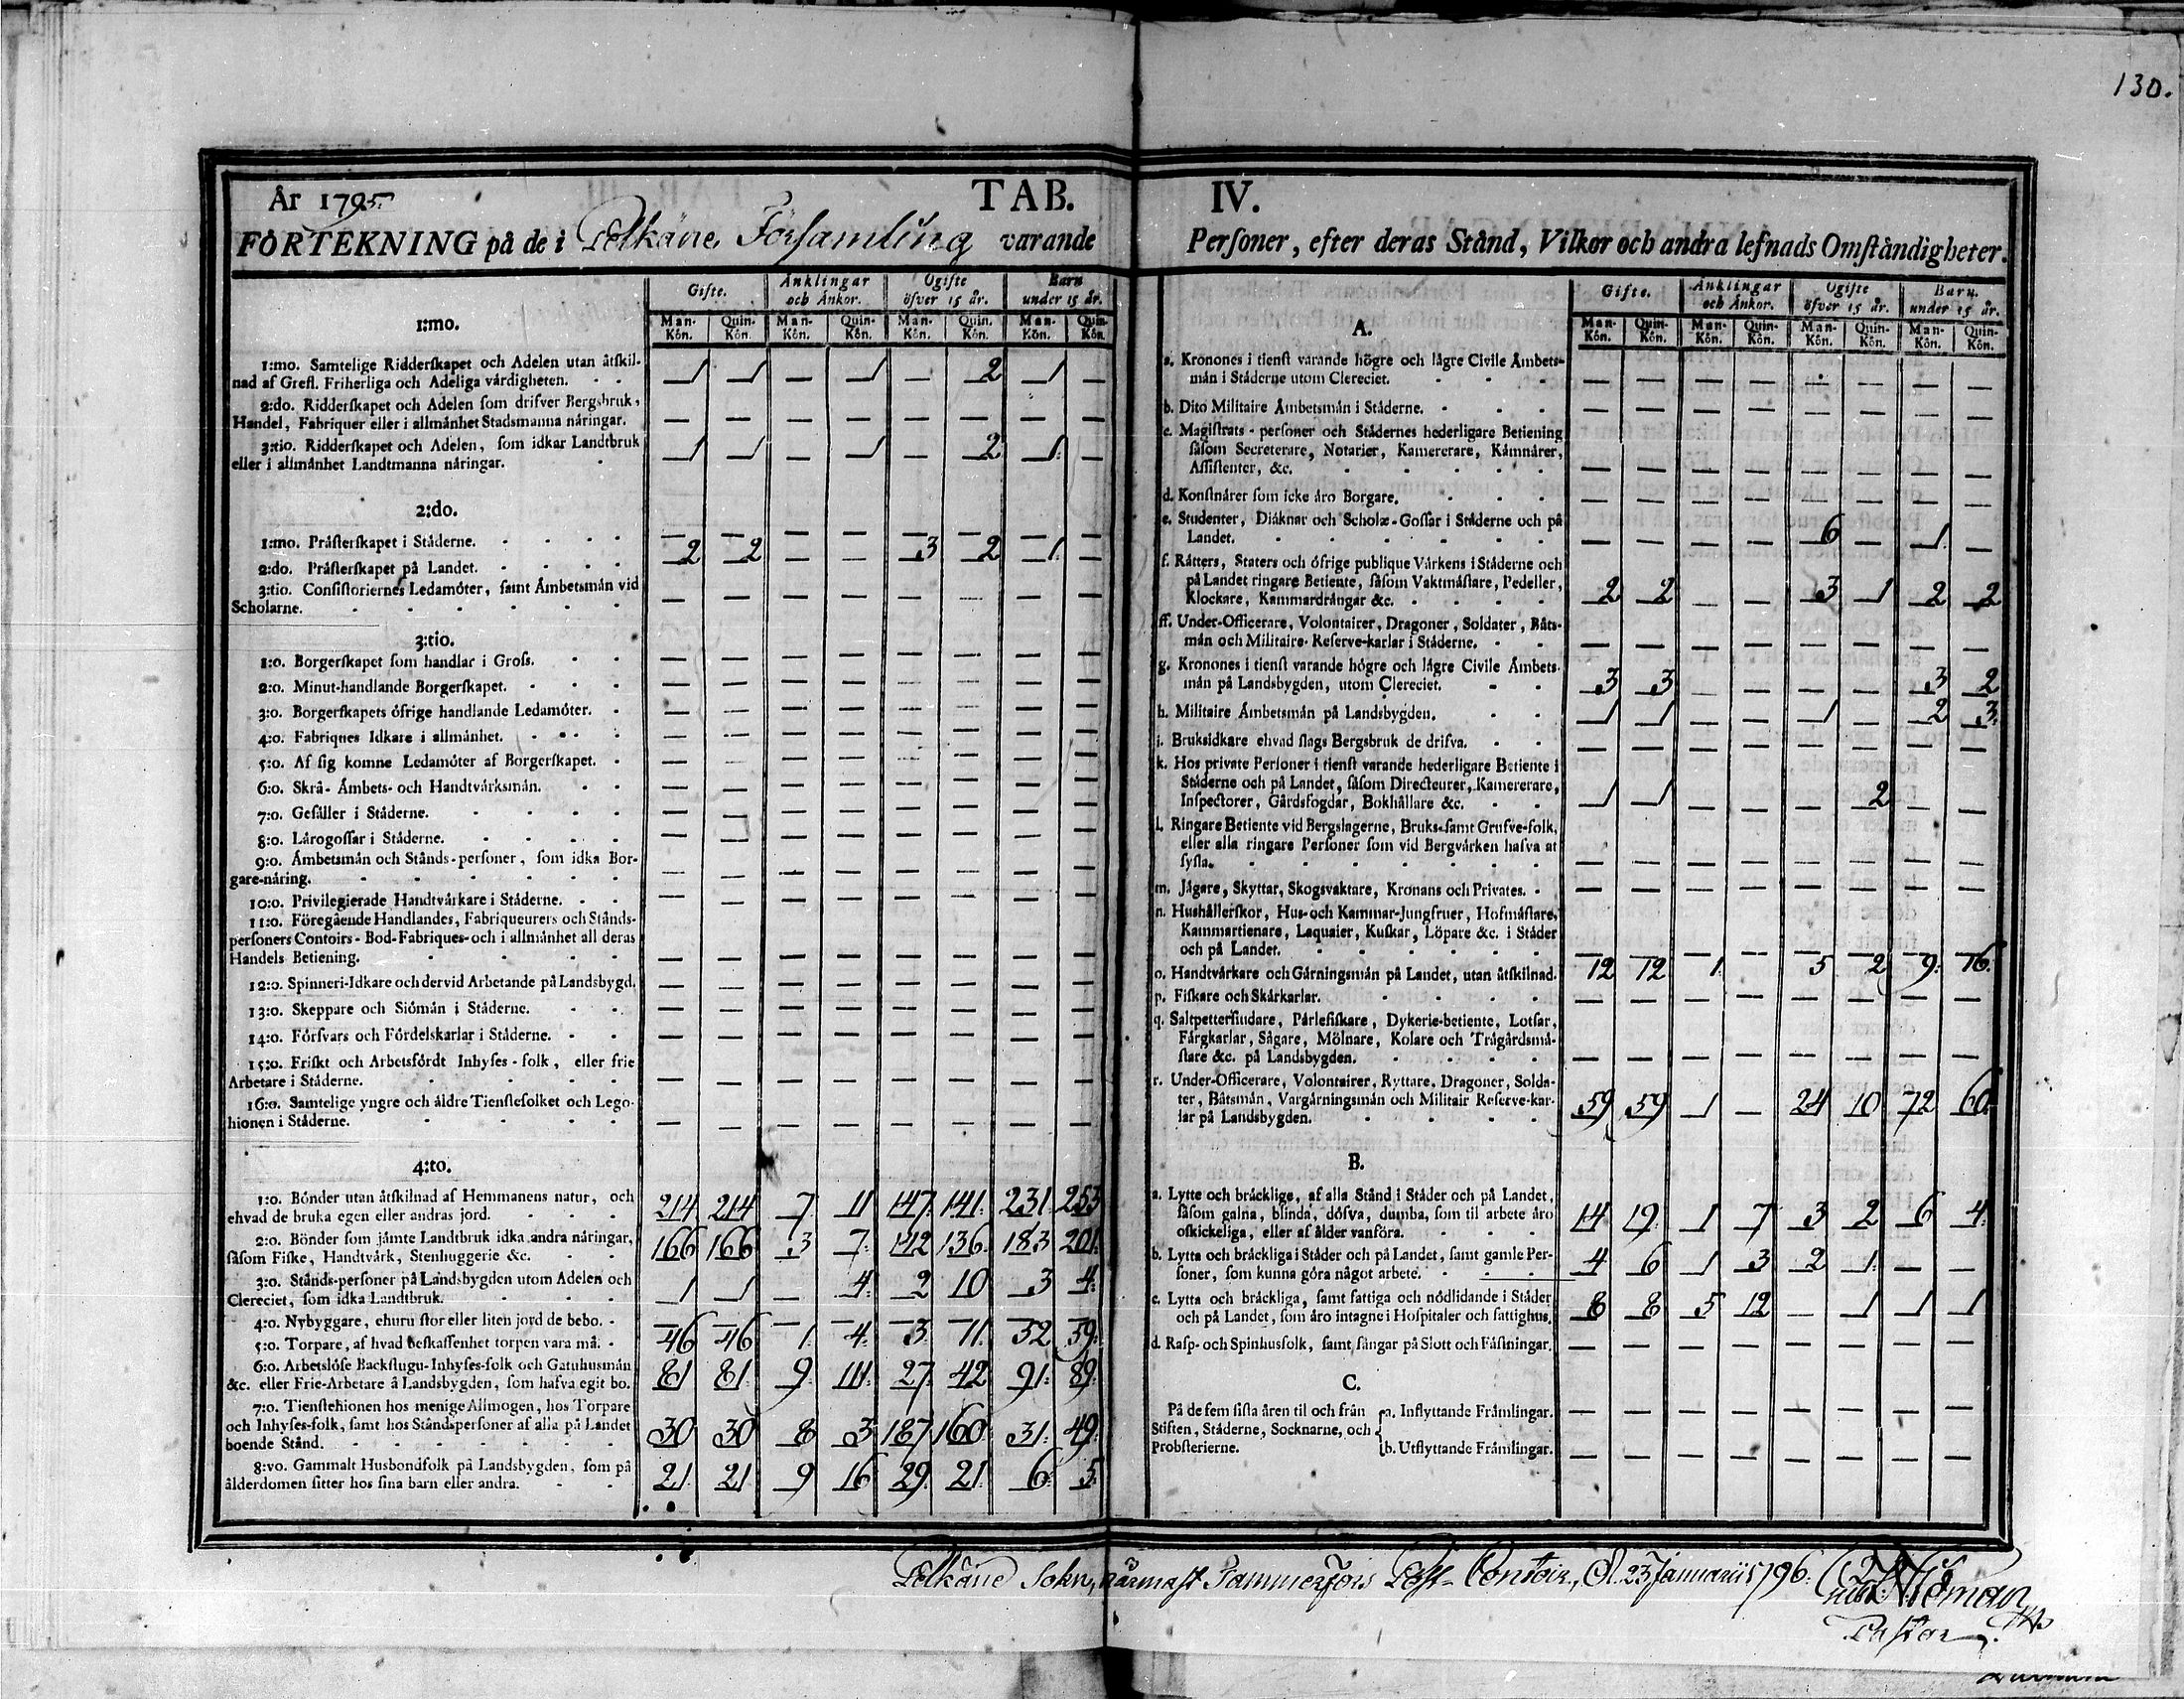 130.
År 1795. TAB. IV.
FÖRTEKNING på de i Pelkäne Församling varande Personer, efter deras Stånd, Vilkor och andra lefnads Omståndigheter.
Gifte. Änklingar och Änkor. Ogifte öfver 15 år. Barn under 15 år.
1:mo. Man-Kön. Quin-Kön. Man-Kön. Quin-Kön. Man-Kön. Quin-Kön. Man-Kön. Quin-Kön.
1:mo. Samtelige Ridderskapet och Adelen utan åtskil-
nad af Grefl. Friherliga och Adeliga vårdigheten. 1 1 — 1 — 2 1 —
2:do. Ridderskapet och Adelen som drifver Bergsbruk,
Handel, Fabriquer eller i allmånhet Stadsmanna nåringar. — — — — — — — —
3:tio. Ridderskapet och Adelen, som idkar Landtbruk
eller i allmånhet Landtmanna nåringar. 1 1 — 1 — 2 1 —
2:do.
1:mo. Pråsterskapet i Ståderne. — — — — — — — —
2:do. Pråsterskapet på Landet. 2 2 — — 3 2 1 —
3:tio. Consistoriernes Ledamöter, samt Ämbetsmån vid
Scholarne. — — — — — — — —
3:tio.
1:o. Borgerskapet som handlar i Gross. — — — — — — — —
2:o. Minut-handlande Borgerskapet. — — — — — — — —
3:o. Borgerskapets öfrige handlande Ledamöter. — — — — — — — —
4:o. Fabriques Idkare i allmånhet. — — — — — — — —
5:o. Af sig komne Ledamöter af Borgerskapet. — — — — — — — —
6:o. Skrå- Ämbets- och Handtvårksmån. — — — — — — — —
7:o. Gesåller i Ståderne. — — — — — — — —
8:o. Lårogossar i Ståderne. — — — — — — — —
9:o. Ämbetsmån och Stånds-personer, som idka Bor-
gare-nåring. — — — — — — — —
10:o. Privilegierade Handtvårkare i Ståderne. — — — — — — — —
11:o. Föregående Handlandes, Fabriqueurers och Stånds-
personers Contoirs- Bod-Fabriques-och i allmånhet all deras
Handels Betiening. — — — — — — — —
12:o. Spinneri-Idkare och dervid Arbetande på Landsbygd. — — — — — — — —
13:o. Skeppare och Siömån i Ståderne. — — — — — — — —
14:o. Försvars och Fördelskarlar i Ståderne. — — — — — — — —
15:o. Friskt och Arbetsfördt Inhyses-folk, eller frie
Arbetare i Ståderne. — — — — — — — —
16:o. Samtelige yngre och åldre Tienstefolket och Lego-
hionen i Ståderne. — — — — — — — —
4:to.
1:o. Bönder utan åtskilnad af Hemmanens natur, och
ehvad de bruka egen eller andras jord. 214 214 7 11 147 141 231 253
2:o. Bönder som jåmte Landtbruk idka andra nåringar,
såsom Fiske, Handtvårk, Stenhuggerie &c. 166 166 3 7 142 136 183 201
3:o. Stånds-personer på Landsbygden utom Adelen och
Clereciet, som idka Landtbruk. 1 1 — 4 2 10 3 4
4:o. Nybyggare, ehuru stor eller liten jord de bebo. — — — — — — — —
5:o. Torpare, af hvad beskaffenhet torpen vara må. 46 46 1 4 3 11 32 39
6:o. Arbetslöse Backstugu-Inhyses-folk och Gatuhusmån
&c. eller Frie-Arbetare å Landsbygden, som hafva egit bo. 81 81 9 111 27 42 91 89
7:o. Tienstehionen hos menige Allmogen, hos Torpare
och Inhyses-folk, samt hos Ståndspersoner af alla på Landet
boende Stånd. 30 30 8 3 187 160 31 49
8:vo. Gammalt Husbondfolk på Landsbygden, som på
ålderdomen sitter hos sina barn eller andra. 21 21 9 16 29 21 6 5
Gifte. Änklingar och Änkor. Ogifte öfver 15 år. Barn under 15 år.
A. Man-Kön. Quin-Kön. Man-Kön. Quin-Kön. Man-Kön. Quin-Kön. Man-Kön. Quin-Kön.
a. Kronones i tienst varande högre och lågre Civile Ämbets-
mån i Ståderne utom Clereciet. — — — — — — — —
b. Dito Militaire Ämbetsmån i Ståderne. — — — — — — — —
c. Magistrats-personer och Stådernes hederligare Betiening
såsom Secreterare, Notarier, Kamererare, Kåmnårer,
Assistenter, &c. — — — — — — — —
d. Konstnårer som icke åro Borgare. — — — — — — — —
e. Studenter, Diåknar och Scholæ-Gossar i Ståderne och på
Landet. — — — — 6 — 1 —
f. Råtters, Staters och öfrige publique Vårkens i Ståderne och
på Landet ringare Betiente, såsom Vaktmåstare, Pedeller,
Klockare, Kammardrångar &c. 2 2 — — 3 1 2 2
ff. Under-Officerare, Volontairer, Dragoner, Soldater, Båts-
mån och Militaire-Reserve-karlar i Ståderne. — — — — — — — —
g. Kronones i tienst varande högre och lågre Civile Ämbets-
mån på Landsbygden, utom Clereciet. 3 3 — — — — 3 2
h. Militaire Ämbetsmån på Landsbygden. 1 1 — — 1 — 2 3
i. Bruksidkare ehvad slags Bergsbruk de drifva. — — — — — — — —
k. Hos private Personer i tienst varande hederligare Betiente i
Ståderne och på Landet, såsom Directeurer, Kamererare,
Inspectorer, Gårdsfogdar, Bokhållare &c. 1 1 — — — 2 — —
l. Ringare Betiente vid Bergslagerne, Bruks-samt Grufve-folk,
eller alla ringare Personer som vid Bergvårken hafva at
sysla. — — — — — — — —
m. Jågare, Skyttar, Skogsvaktare, Kronans och Privates. — — — — — — — —
n. Hushållerskor, Hus-och Kammar-Jungfruer, Hofmåstare,
Kammartienare, Laquaier, Kuskar, Löpare &c. i Ståder
och på Landet. — — — — — — — —
o. Handtvårkare och Gårningsmån på Landet, utan åtskilnad. 12 12 1 — 5 2 9 16
p. Fiskare och Skårkarlar. — — — — — — — —
q. Saltpettersiudare, Pårlefiskare, Dykerie-betiente, Lotsar,
Fårgkarlar, Sågare, Mölnare, Kolare och Trågårdsmå-
stare &c. på Landsbygden. — — — — — — — —
r. Under-Officerare, Volontairer, Ryttare, Dragoner, Solda-
ter, Båtsmån, Vargårningsmån och Militair Reserve-kar-
lar på Landsbygden. 59 59 1 — 24 10 72 60
B.
a. Lytte och bråcklige, af alla Stånd i Ståder och på Landet,
såsom galna, blinda, döfva, dumba, som til arbete åro
oskickeliga, eller af ålder vanföra. 14 19 1 7 3 2 6 4
b. Lytta och bråckliga i Ståder och på Landet, samt gamle Per-
soner, som kunna göra något arbete. 4 6 1 3 2 1 — —
c. Lytta och bråckliga, samt fattiga och nödlidande i Ståder
och på Landet, som åro intagne i Hospitaler och fattighus. 8 8 5 12 — 1 1 1
d. Rasp- och Spinhusfolk, samt fångar på Slott och Fåstningar. — — — — — — — —
C.
På de fem sista åren til och från
Stiften, Ståderne, Socknarne, och
Probsterierne.
a. Inflyttande Fråmlingar. — — — — — — — —
b. Utflyttande Fråmlingar. — — — — — — — —
Pelkäne Sokn, närmast Tammerfors Post-Contoir, d. 23 Januarii 1796.
Pastor